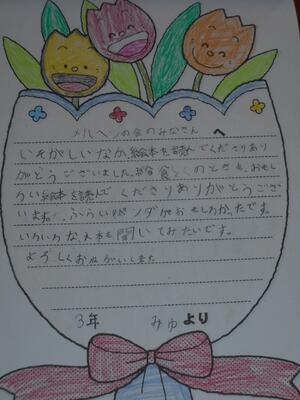 メルヘンの会のみなさん へ
いそがしいなか、絵本を読んでくださりあり
がとうございました。給食のときも、おもし
ろい絵本を読んでくださりありがとうござい
ます。
おもしろかったです。
いろいろな 本を聞いてみたいです。
よろしくおねがいします
3年 みゆより